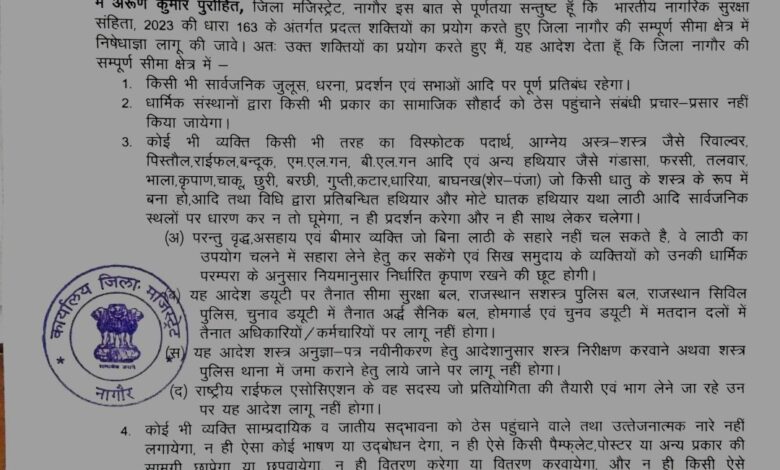 में अरूण कुमार पुरोहित, जिला मजिस्ट्रेट, नागौर इस बात से पूर्णतया सन्तुष्ट हूँ कि भारतीय नागरिक सुरक्षा
संहिता, 2023 की धारा 163 के अंतर्गत प्रदत्त शक्तियों का प्रयोग करते हुए जिला नागौर की सम्पूर्ण सीमा क्षेत्र में
निषेधाज्ञा लागू की जावे। अतः उक्त शक्तियों का प्रयोग करते हुए मैं, यह आदेश देता हूँ कि जिला नागौर की
सम्पूर्ण सीमा क्षेत्र में –
1. किसी भी सार्वजनिक जुलूस, धरना, प्रदर्शन एवं सभाओं आदि पर पूर्ण प्रतिबंध रहेगा।
2. धार्मिक संस्थानों द्वारा किसी भी प्रकार का सामाजिक सौहार्द को ठेस पहुंचाने संबंधी प्रचार–प्रसार नहीं
किया जायेगा।
3. कोई भी व्यक्ति किसी भी तरह का विस्फोटक पदार्थ, आग्नेय अस्त्र–शस्त्र जैसे रिवाल्वर,
पिस्तौल,राईफल,बन्दूक, एम.एल.गन, बी.एल.गन आदि एवं अन्य हथियार जैसे गंडासा, फरसी, तलवार,
भाला,कृपाण,चाकू, छुरी, बरछी, गुप्ती,कटार,धारिया, बाघनख(शेर–पंजा) जो किसी धातु के शस्त्र के रूप में
बना हो,आदि तथा विधि द्वारा प्रतिबन्धित हथियार और मोटे घातक हथियार यथा लाठी आदि सार्वजनिक
स्थलों पर धारण कर न तो घूमेगा, न ही प्रदर्शन करेगा और न ही साथ लेकर चलेगा।
(अ) परन्तु वृद्ध,असहाय एवं बीमार व्यक्ति जो बिना लाठी के सहारे नहीं चल सकते है, वे लाठी का
उपयोग चलने में सहारा लेने हेतु कर सकेंगे एवं सिख समुदाय के व्यक्तियों को उनकी धार्मिक
परम्परा के अनुसार नियमानुसार निर्धारित कृपाण रखने की छूट होगी।
(ब) यह आदेश डयूटी पर तैनात सीमा सुरक्षा बल, राजस्थान सशस्त्र पुलिस बल, राजस्थान सिविल
पुलिस, चुनाव डयूटी में तैनात अर्द्ध सैनिक बल, होमगार्ड एवं चुनव डयूटी में मतदान दलों में
तैनात अधिकारियों/कर्मचारियों पर लागू नहीं होगा।
(स) यह आदेश शस्त्र अनुज्ञा–पत्र नवीनीकरण हेतु आदेशानुसार शस्त्र निरीक्षण करवाने अथवा शस्त्र
पुलिस थाना में जमा कराने हेतु लाये जाने पर लागू नहीं होगा।
(द) राष्ट्रीय राईफल एसोसिएशन के वह सदस्य जो प्रतियोगिता की तैयारी एवं भाग लेने जा रहे उन
पर यह आदेश लागू नहीं होगा।
4. कोई भी व्यक्ति साम्प्रदायिक व जातीय सद्भावना को ठेस पहुंचाने वाले तथा उत्तेजनात्मक नारे नहीं
लगायेगा, न ही ऐसा कोई भाषण या उद्बोधन देगा, न ही ऐसे किसी पैम्फ्लेट,पोस्टर या अन्य प्रकार की
सामग्री छापेगा या छपवायेगा, न ही वितरण करेगा या वितरण करवायेगा और न ही किसी ऐसे
कार्यालय जिला मजिस्ट्रेट
नागौर